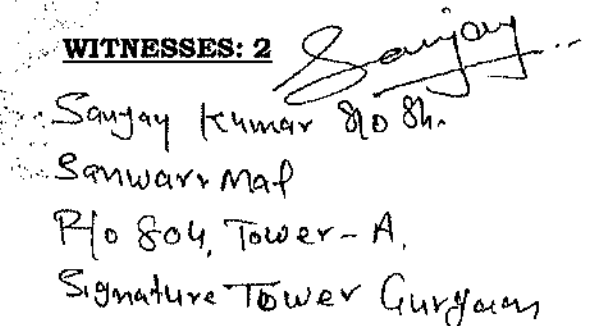 WITNESSES: 2 Sanjay
Sanjay Kumar S/o Sh.
Sanwar Mal
R/o 804, Tower-A,
Signature Tower Gurgaon